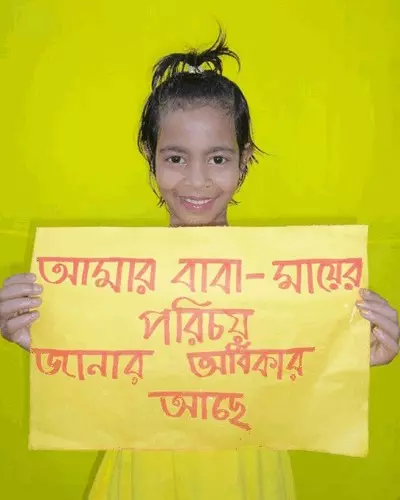 আমার বাবা-মায়ের
পরিচয়
জানার অধিকার
আছে